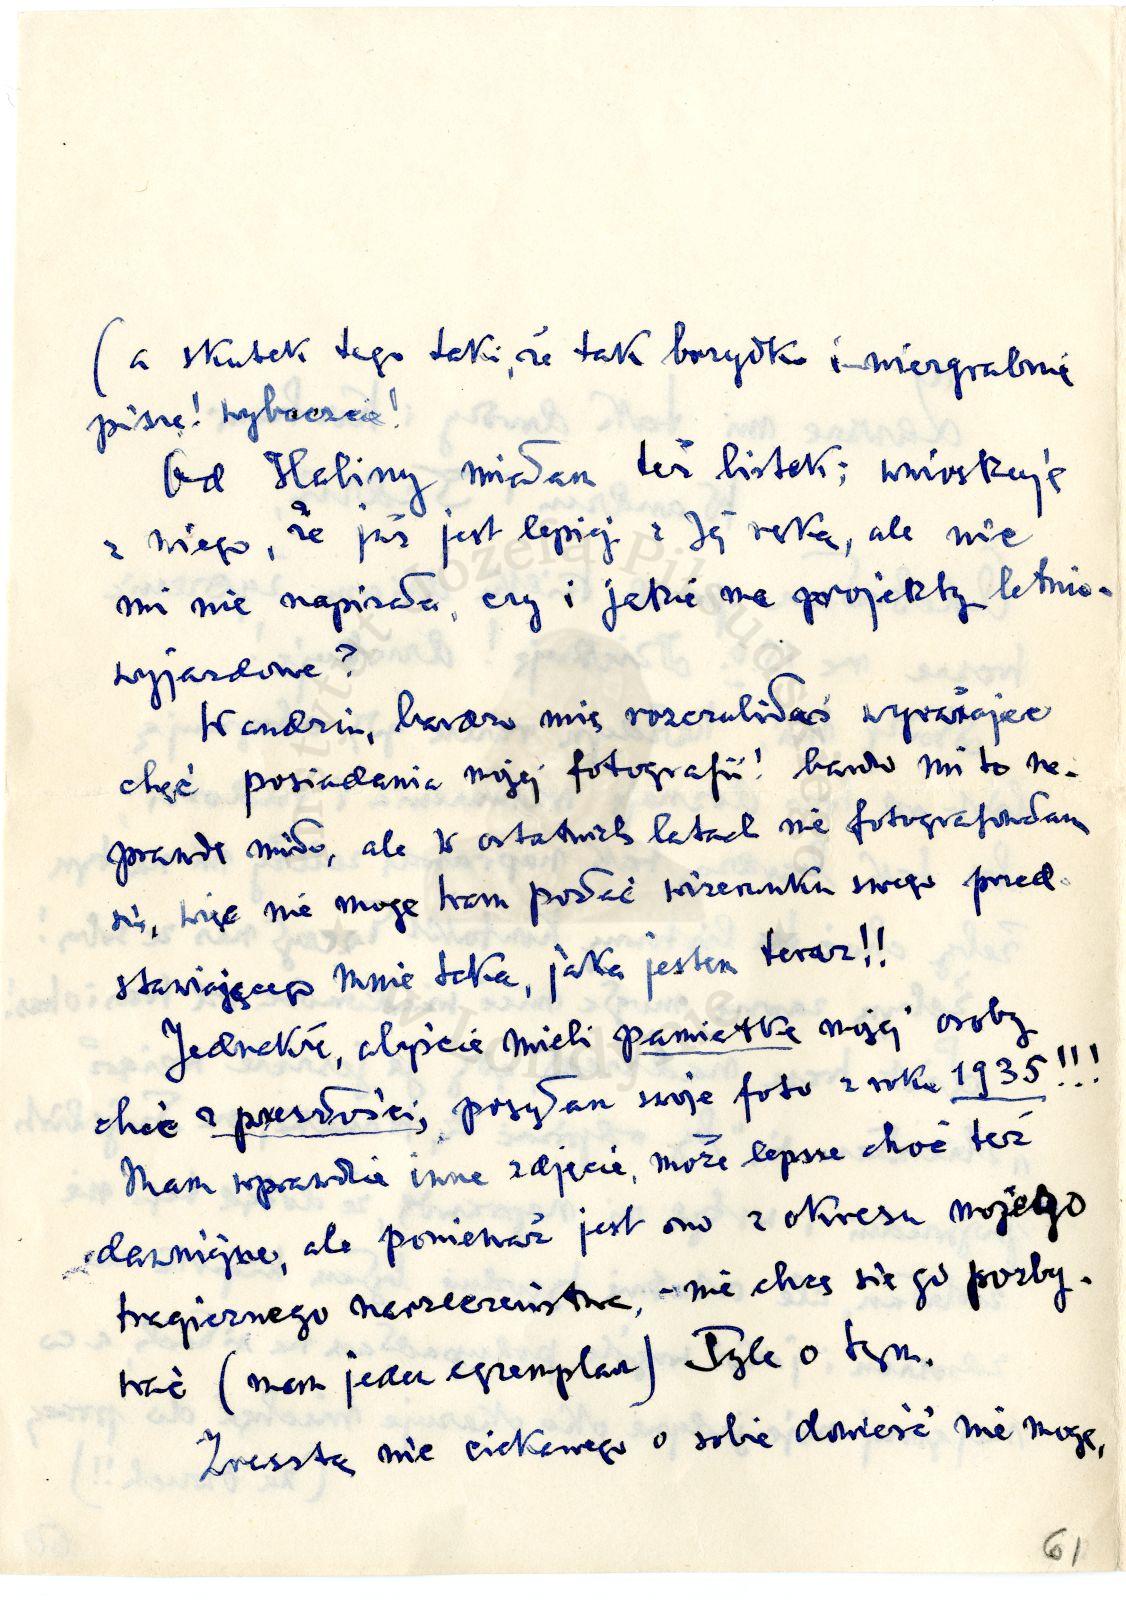 (a skutek tego taki, że tak brzydko i niezgrabnie
piszę! wybaczcie!
Od Haliny miałam też listek; wnioskuję
z niego, że już jest lepiej z Jej ręką, ale nic
mi nie napisała, czy i jakie ma projekty letnio-
wyjazdowe?
Wandziu, bardzo mię rozczuliłaś wyrażając
chęć posiadania mojej fotografii! bardzo mi to na-
prawdę miło, ale w ostatnich latach nie fotografowałam
się, więc nie mogę Wam posłać wizerunku swego przed-
stawiającego mnie taką, jaką jestem teraz!!
Jednakże, abyście mieli pamiątkę mojej osoby
choć z przeszłości, posyłam swoje foto z roku 1935!!!
Mam wprawdzie inne zdjęcie, może lepsze choć też
dawniejsze, ale ponieważ jest ono z okresu mojego
tragicznego narzeczeństwa, - nie chcę się go pozby-
wać (mam jeden egzemplarz) Tyle o tym.
Zresztą nic ciekawego o sobie donieść nie mogę,
61
Instytut Józefa Piłsudskiego
w Londynie